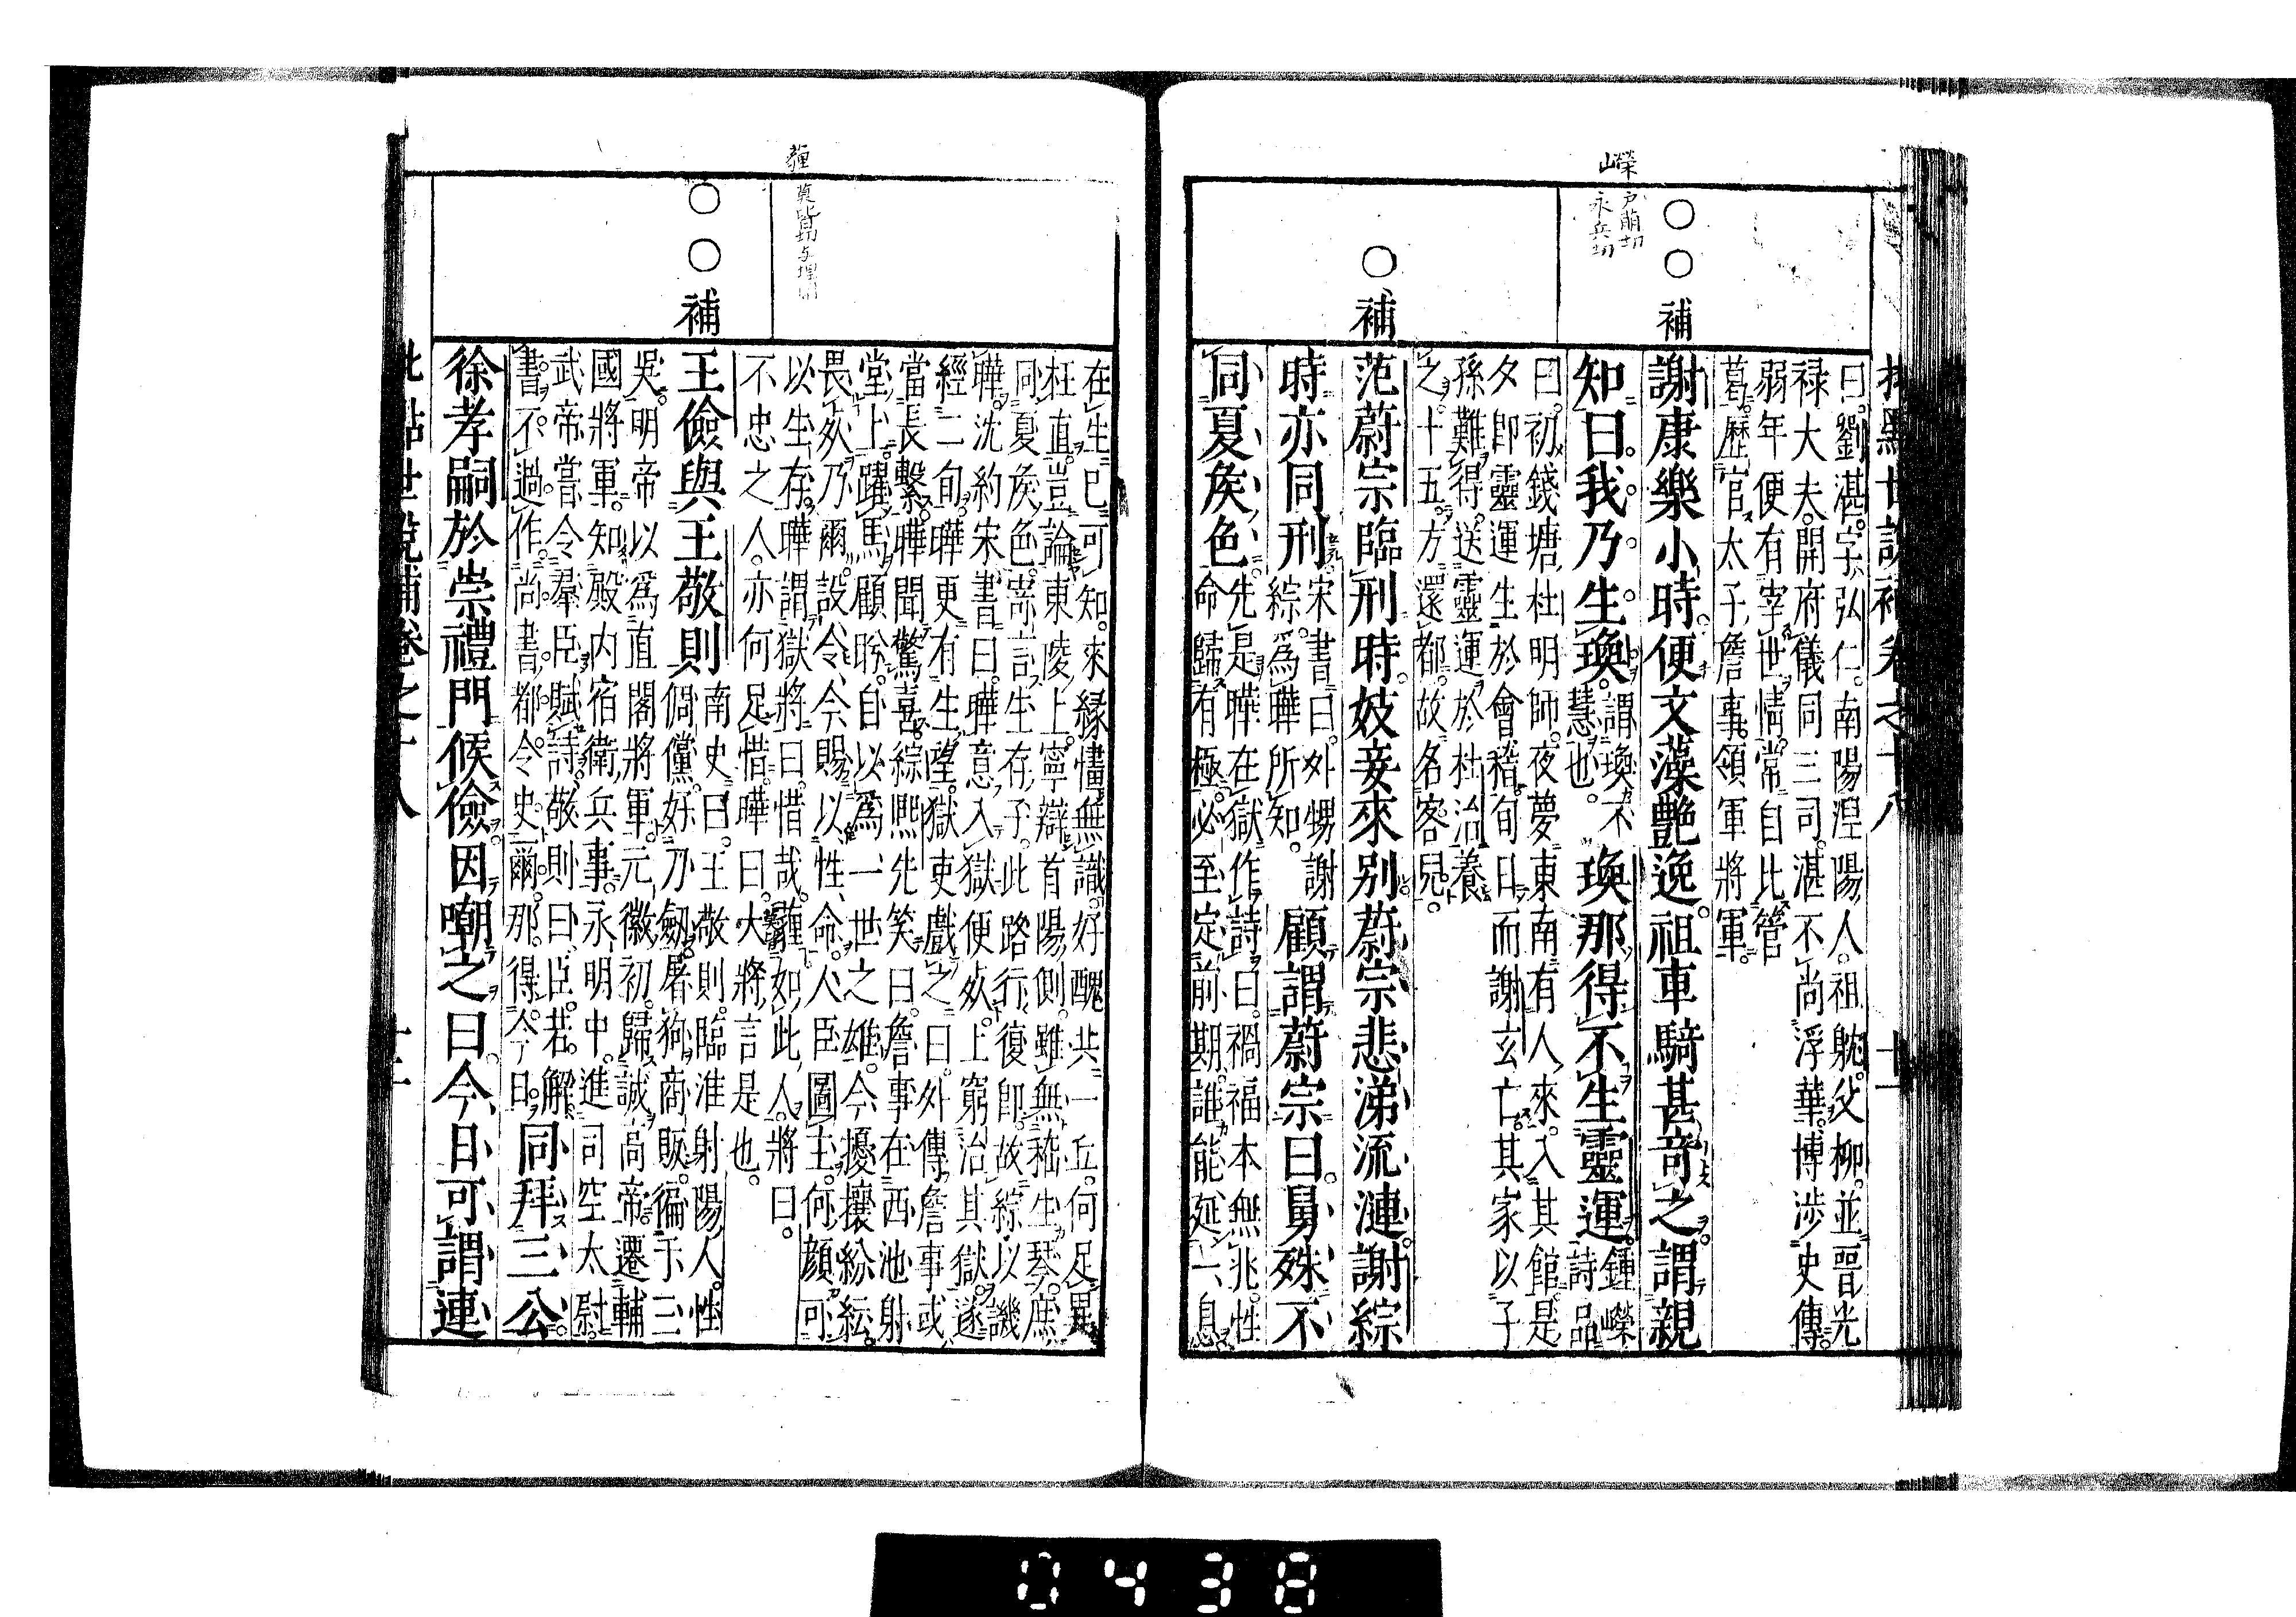 批點世說補卷之十八
十二
曰劉湛字弘仁南陽湼陽人祖躭父柳並晉光
祿大夫開府儀同三司湛不尚浮華博涉史傳
弱年便有宰世情常自比管
葛歷官太子詹事領軍將軍
○○補
謝康樂小時便文藻艷逸祖車騎甚竒之謂親
知曰我乃生瑍謂瑍不慧也瑍那得不生靈運鍾嶸詩品
曰初錢塘杜明師夜夢東南有人來入其館是
夕卽靈運生於會稽旬日而謝玄亡其家以子
孫難得送靈運於杜治養
之十五方還都故名客兒
○補
范蔚宗臨刑時妓妾來別蔚宗悲涕流漣謝綜
時亦同刑宋書曰外甥謝綜爲曄所知顧謂蔚宗曰舅殊不
同夏矦色先是曄在獄作詩曰禍福本無兆性
命歸有極必至定前期誰能延一息
在生已可知來縁㦎無識好醜共一丘何足異
枉直豈論東陵上寧辯首陽側雖無嵇生琴庶
同夏矦色寄言生存子此路行復卽故綜以譏
曄沈約宋書曰曄意入獄便死上窮治其獄遂
經二旬曄更有生望獄吏戲之曰外傳詹事或
當長繫曄聞驚喜綜熙先笑曰詹事在西池射
堂上躍馬顧盼自以爲一世之雄今擾攘紛紜
畏死乃爾設令今賜以性命人臣圖主何顏可
以生存曄謂獄將曰惜哉薶如此人將曰
不忠之人亦何足惜曄曰大將言是也
○○補
王儉與王敬則南史曰王敬則臨淮射陽人性
倜儻好刀劔屠狗商販徧于三
吳明帝以爲直閣將軍元徽初歸誠高帝遷輔
國將軍知殿內宿衛兵事永明中進司空太尉
武帝嘗令羣臣賦詩敬則曰臣若解
書不過作尚書都令史爾那得今日同拜三公
徐孝嗣於崇禮門候儉因嘲之曰今日可謂連
批點世說補卷之十八
十二
嶸
戶萠切
永兵切
薶
莫皆切与埋同
0438